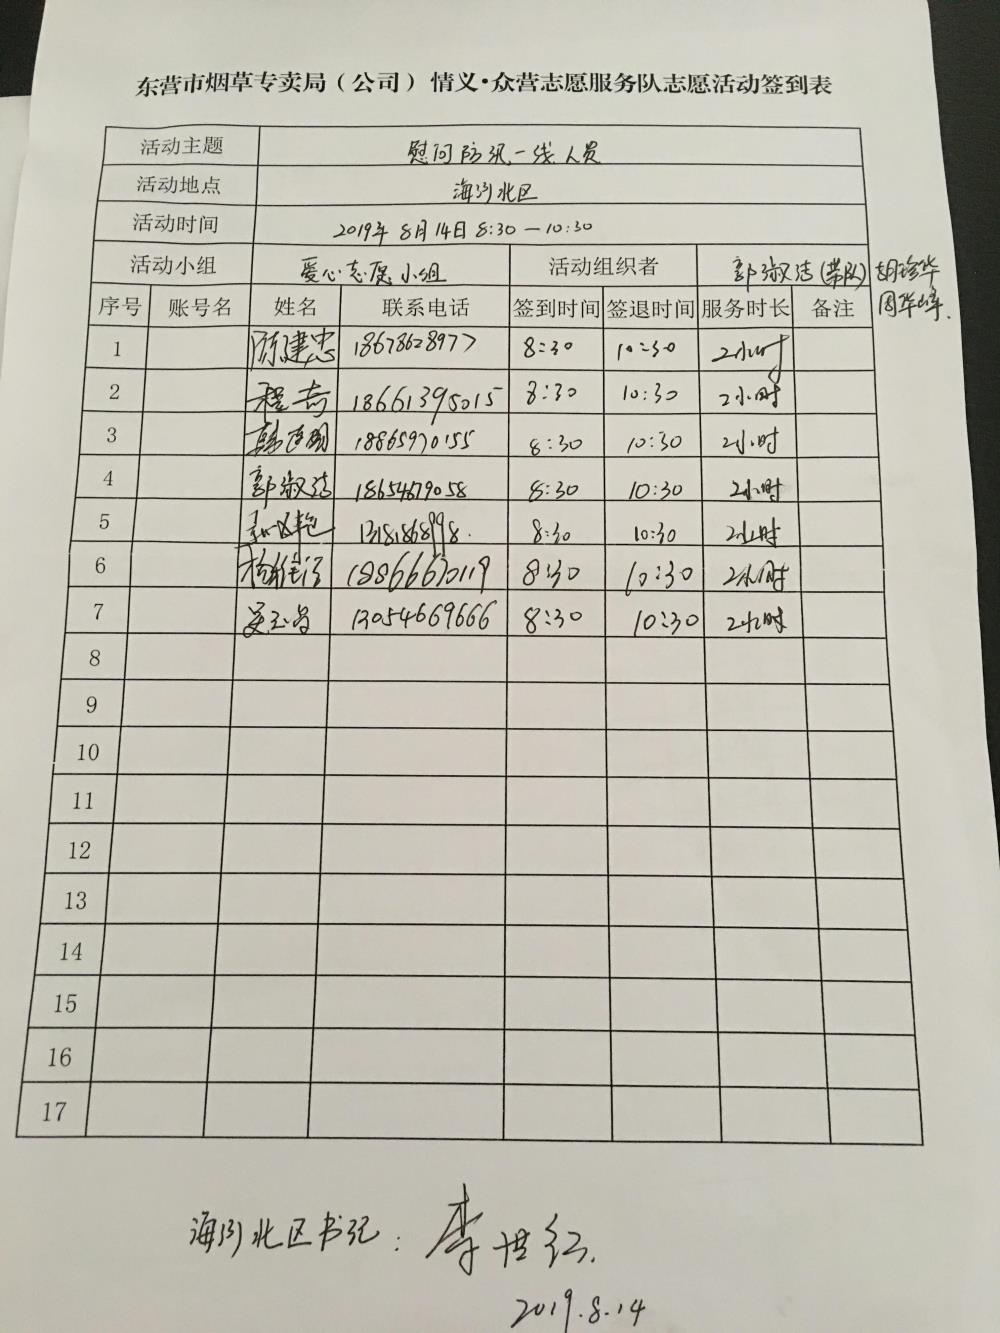 东营市烟草专卖局（公司）情义·众营志愿服务队志愿活动签到表
活动主题 慰问防汛一线人员
活动地点 海河北区
活动时间 2019年8月14日 8:30—10:30
活动小组 爱心志愿小组 活动组织者 郭淑洁(带队) 胡珍华
周华峰.
序号 账号名 姓名 联系电话 签到时间 签退时间 服务时长 备注
1 陈建忠 18678628977 8:30 10:30 2小时
2 程奇 18661395015 8:30 10:30 2小时
3 18865970155 8:30 10:30 2小时
4 郭淑洁 18654679058 8:30 10:30 2小时
5 13181868998. 8:30 10:30 2小时
6 18866670119 8:30 10:30 2小时
7 13054669666 8:30 10:30 2小时
8
9
10
11
12
13
14
15
16
17
海河北区书记： 李世红.
2019.8.14